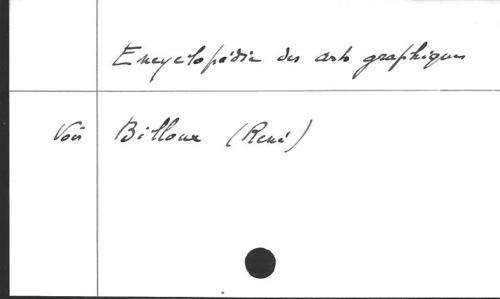 Encyclopédie des arts graphiques
Voir Billoux (René)